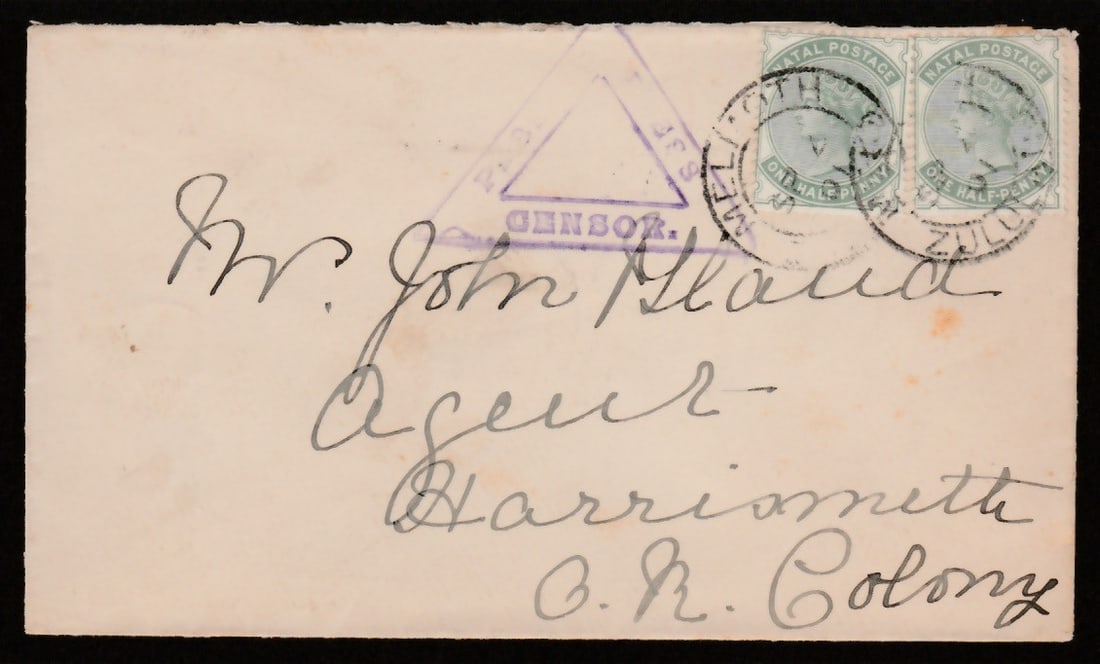 NATAL POSTAGE
ONE HALF-PENNY
NATAL POSTAGE
ONE HALF-PENNY
MELMOTH
ZULULAND
CENSOR.
Mr. John Bland
Agent
Harrismith
O. R. Colony